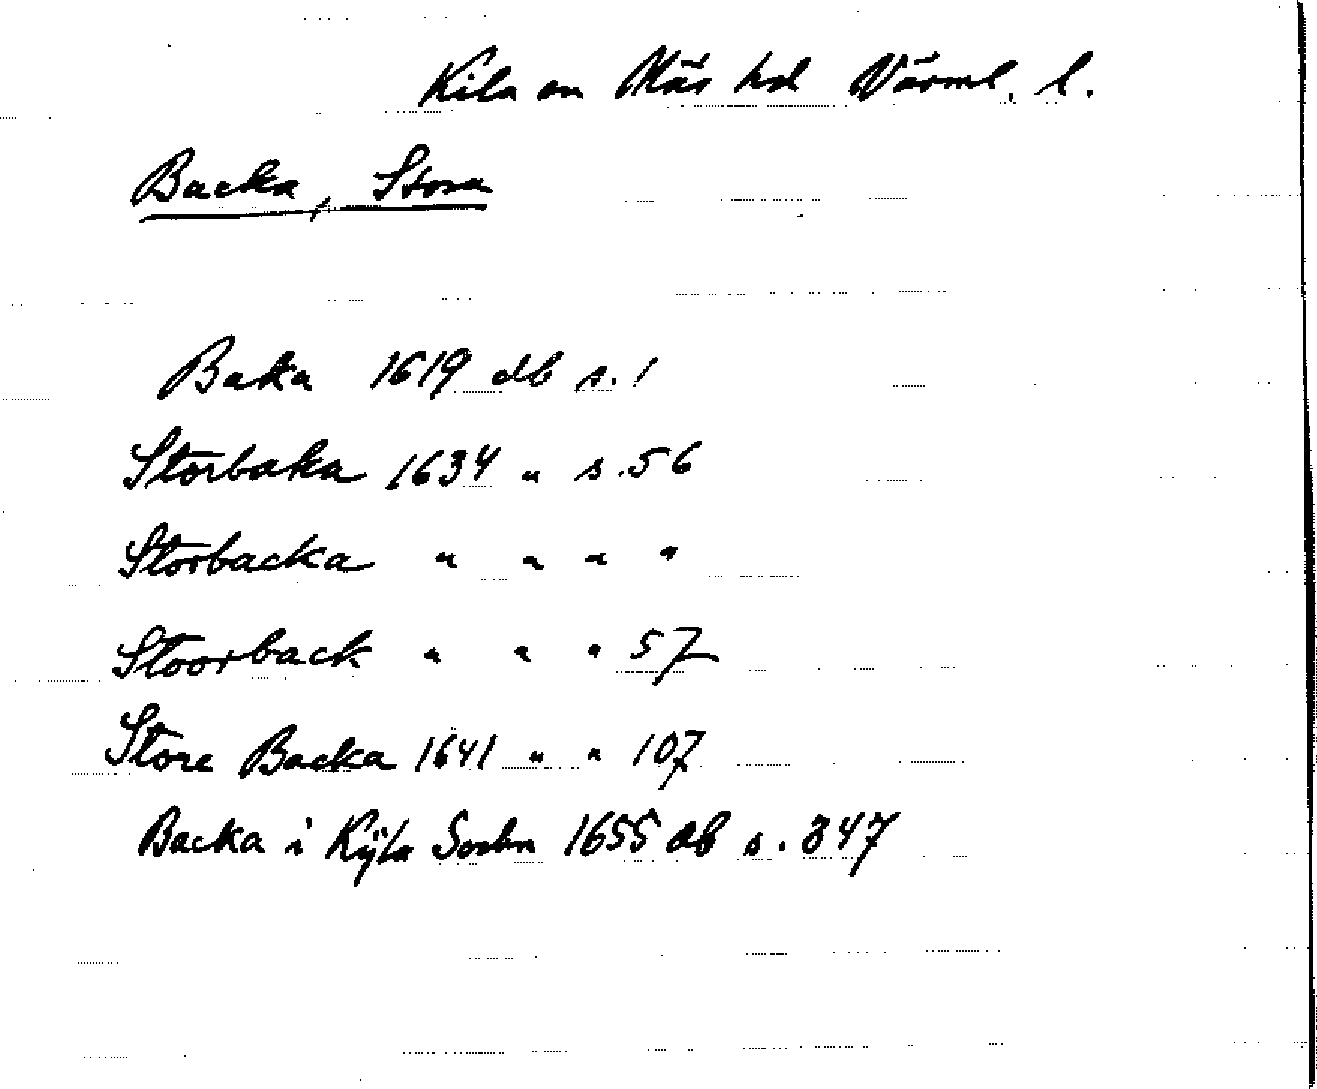 Kila sn Näs hd Värml. l.
Backa, Stora
Baka 1619 db s. 1
Storbaka 1634 " s. 56
Storbacka " " " "
Stoorback " " " 57
Store Backa 1641 " " 107
Backa i Kÿla Sochn 1655 db s. 347